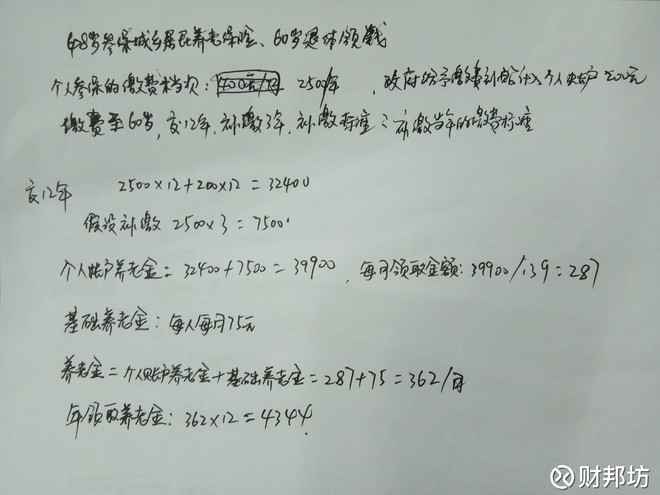 48岁参保城乡居民养老保险、60岁退休领钱
个人参保的缴费档次: 2500/年, 政府给予缴费补贴计入个人账户200元
缴费至60岁, 交12年, 补缴3年, 补缴标准:补缴当年的缴费标准
交12年 2500×12+200×12=32400
假设补缴 2500×3=7500
个人账户养老金=32400+7500=39900, 每月领取金额: 39900/139=287
基础养老金: 每人每月75元
养老金=个人账户养老金+基础养老金=287+75=362/月
年领取养老金: 362×12=4344.
财邦坊